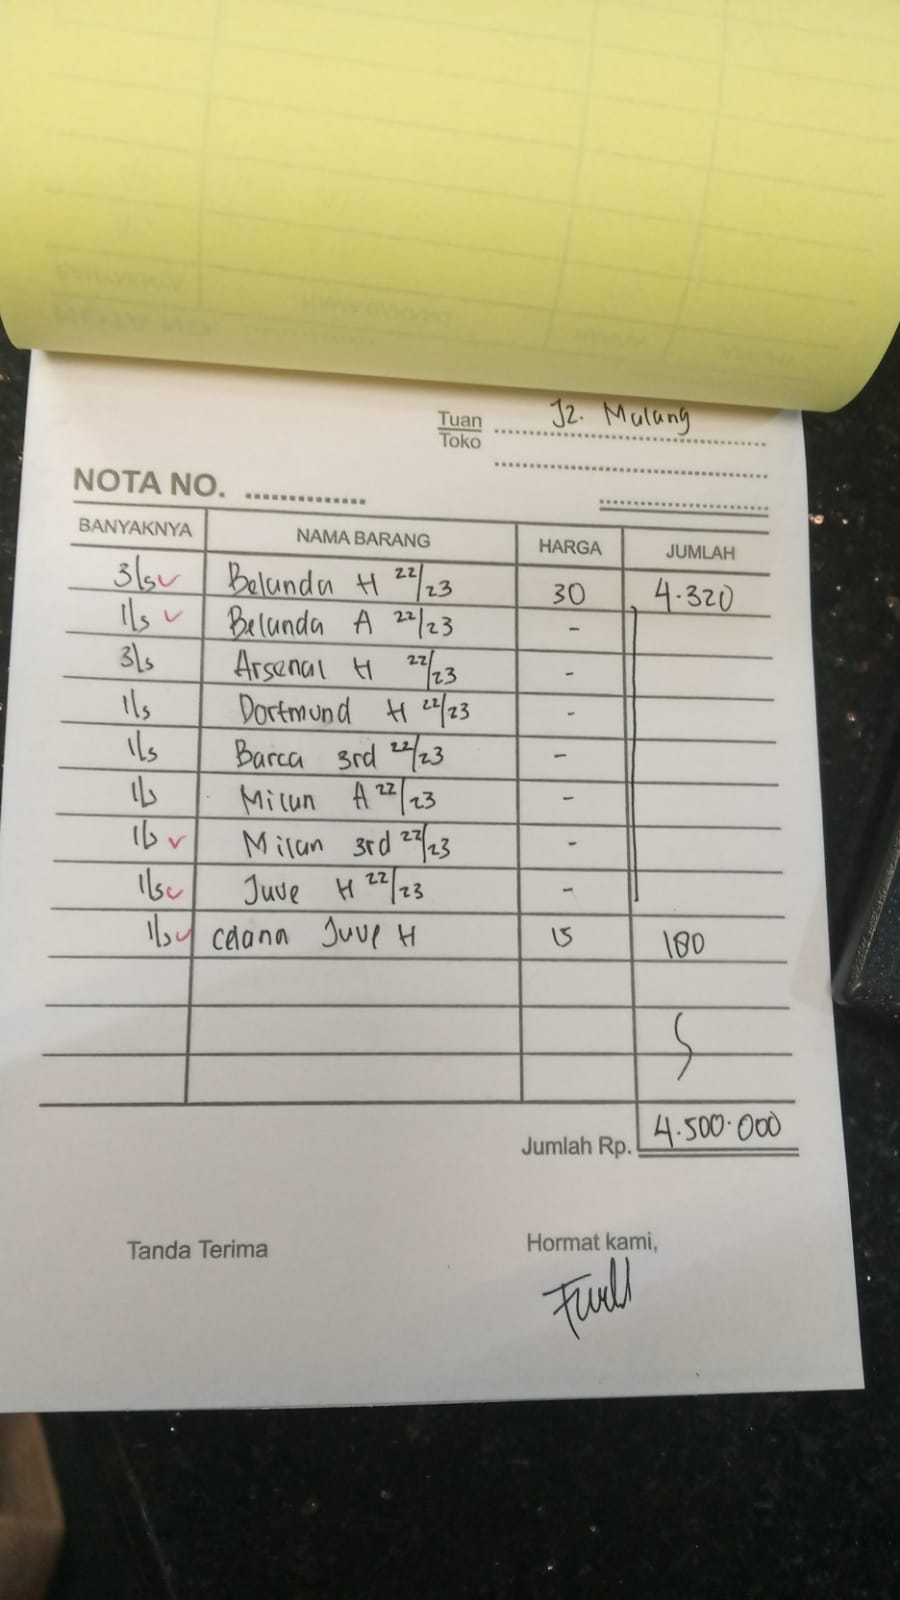 Tuan J2. Malang
Toko
NOTA NO.
BANYAKNYA NAMA BARANG HARGA JUMLAH
3/s Belanda H 22/23 30 4.320
1/s Belanda A 22/23 -
3/s Arsenal H 22/23 -
1/s Dortmund H 22/23 -
1/s Barca 3rd 22/23 -
1/s Milan A 22/23 -
1/s Milan 3rd 22/23 -
1/s Juve H 22/23 -
1/s celana Juve H 15 180
Jumlah Rp. 4.500.000
Tanda Terima Hormat kami,